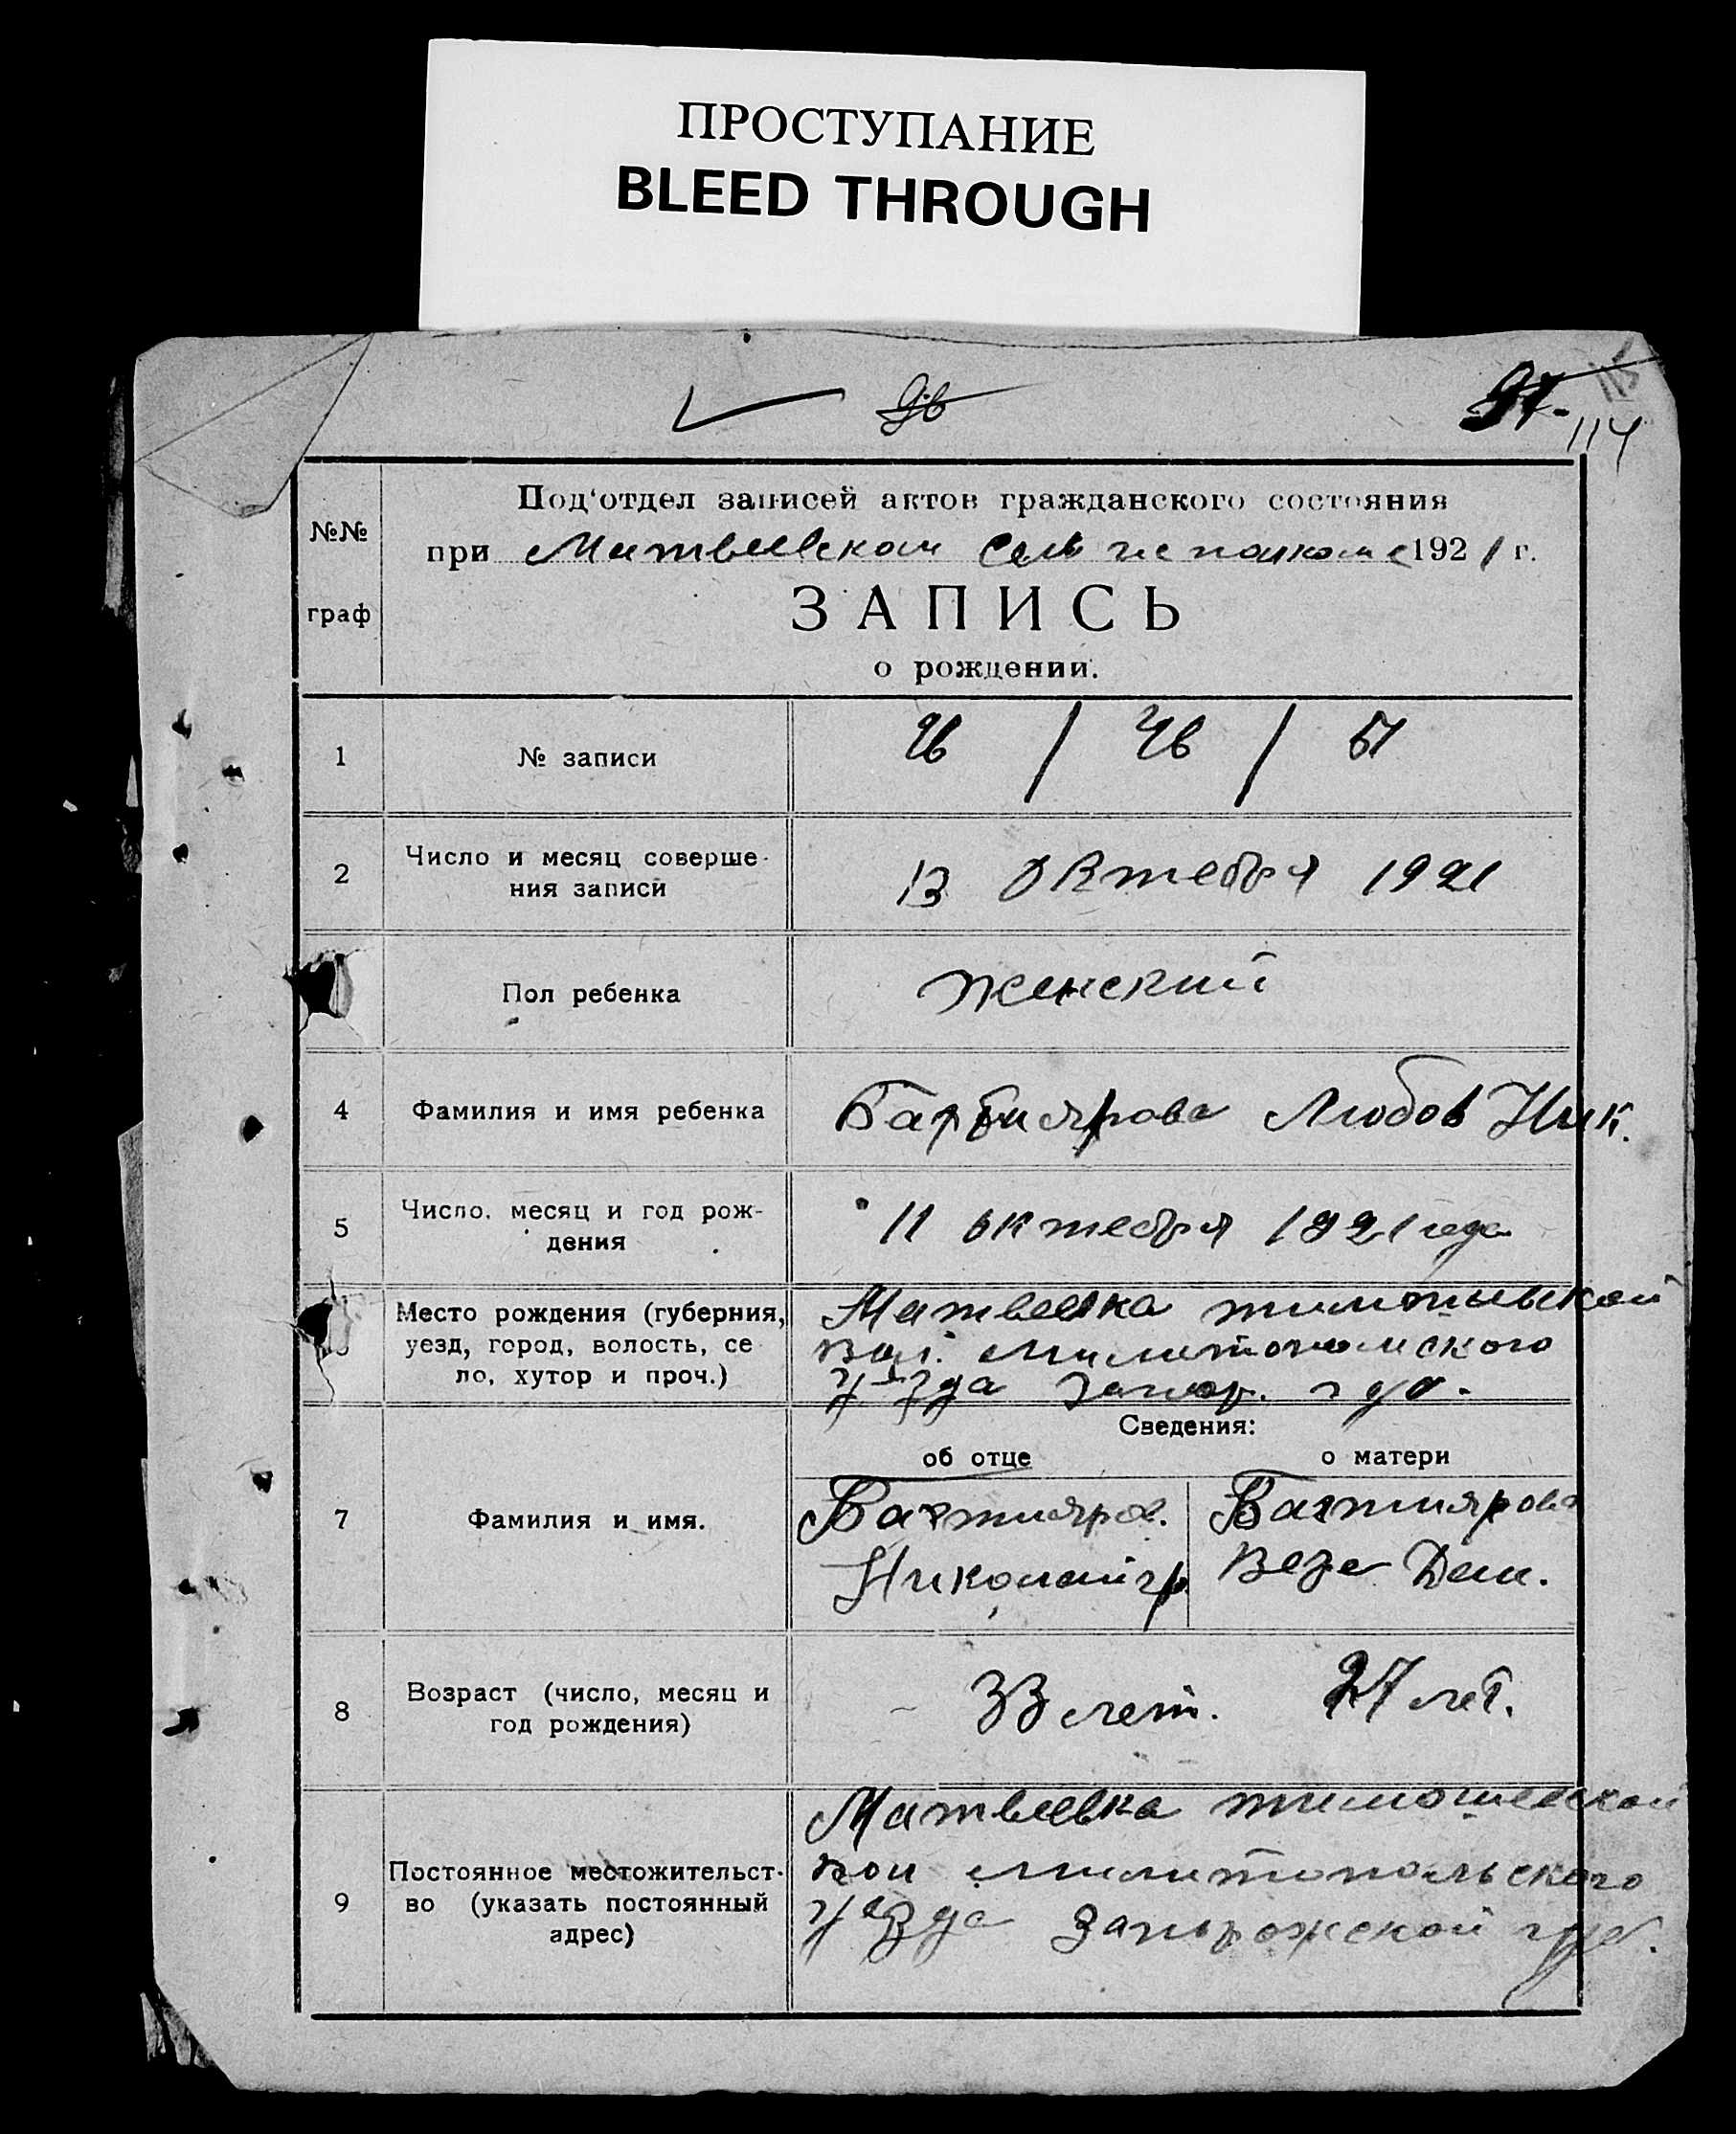 ПРОСТУПАНИЕ
BLEED THROUGH
114
№№
граф
Под'отдел записей актов гражданского состояния
при Матвеевском Сель 1921 г.
ЗАПИСЬ
о рождении.
1 № записи / 46 /
2 Число и месяц соверше-
ния записи
13 Октебря 1921
Пол ребенка женский
4 Фамилия и имя ребенка Любов Ник.
5 Число, месяц и год рож-
дения
11 октебря 1921 года
Место рождения (губерния,
уезд, город, волость, се
ло, хутор и проч.)
Матвеевка
вол.
Запор. губ.
Сведения:
об отце о матери
7 Фамилия и имя.
Бахтияров. Бахтиярова
Николай гр Вера Дем.
8 Возраст (число, месяц и
год рождения)
33 лет. 27 лет.
9 Постоянное местожительст-
во (указать постоянный
адрес)
Матвеевка тимошевской
вол милитопольского
уезда Запорожской губ.